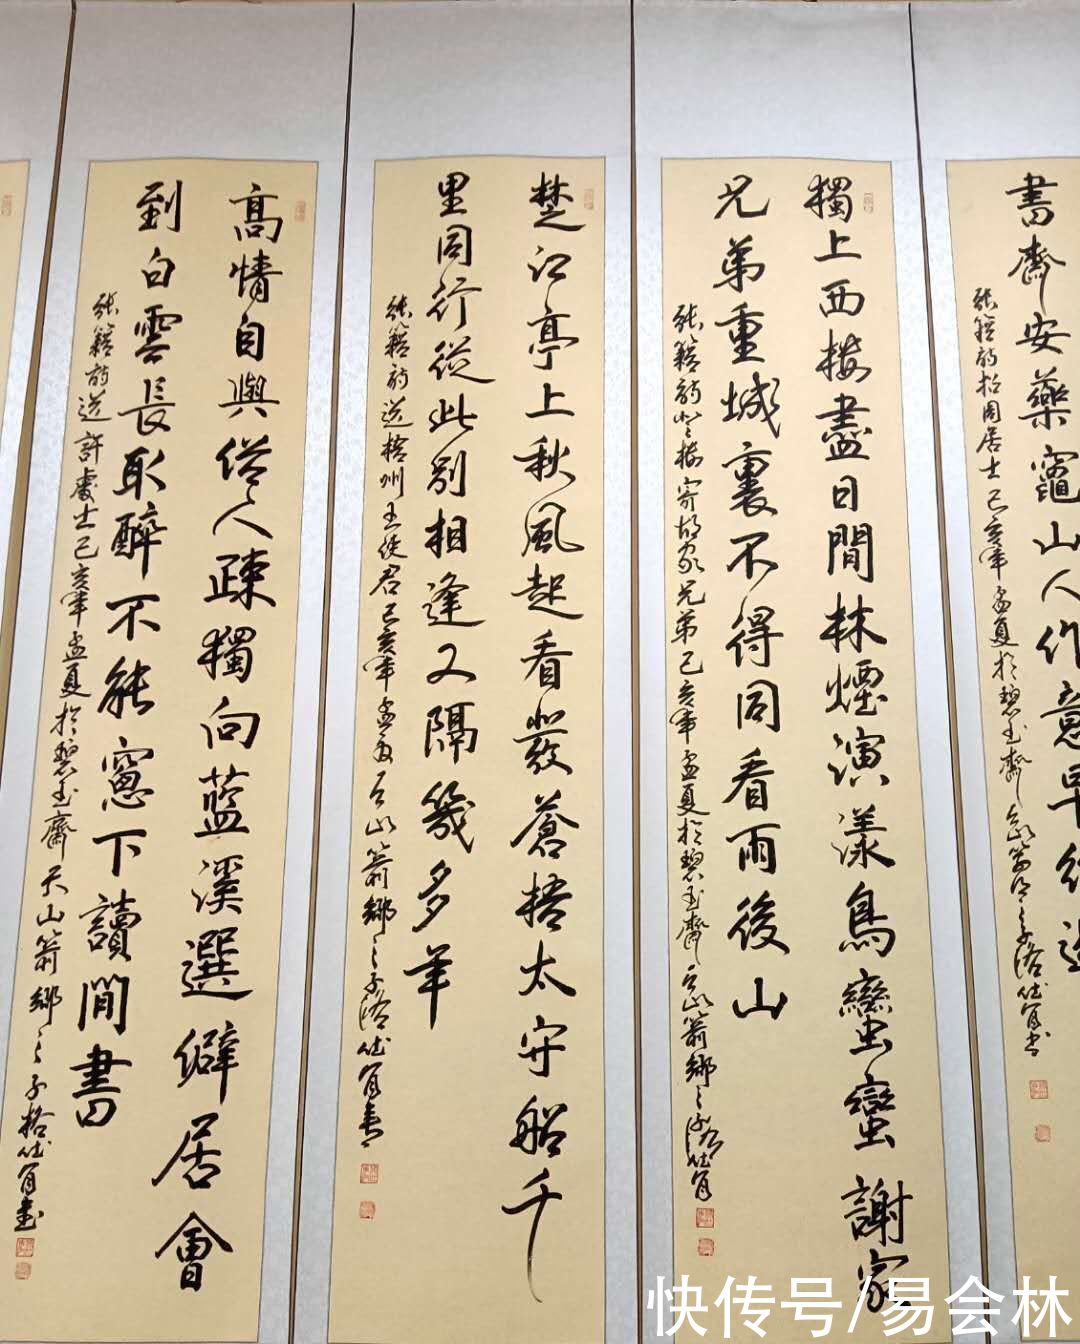 書齋安藥竈山人作意早經過
張籍詩招周居士己亥年孟夏於碧玉齋
獨上西樓盡日閒林煙演漾鳥蠻蠻謝家
兄弟重城裏不得同看雨後山
張籍詩登樓寄胡家兄弟己亥年孟夏於碧玉齋天山箭鄉之子
楚江亭上秋風起看發蒼梧太守船千
里同行從此別相逢又隔幾多年
張籍詩送梧州王使君己亥年孟夏天山箭鄉之子
高情自與俗人疎獨向藍溪選僻居會
到白雲長取醉不能窻下讀閒書
張籍詩送許處士己亥年孟夏於碧玉齋天山箭鄉之子
快传号/易会林